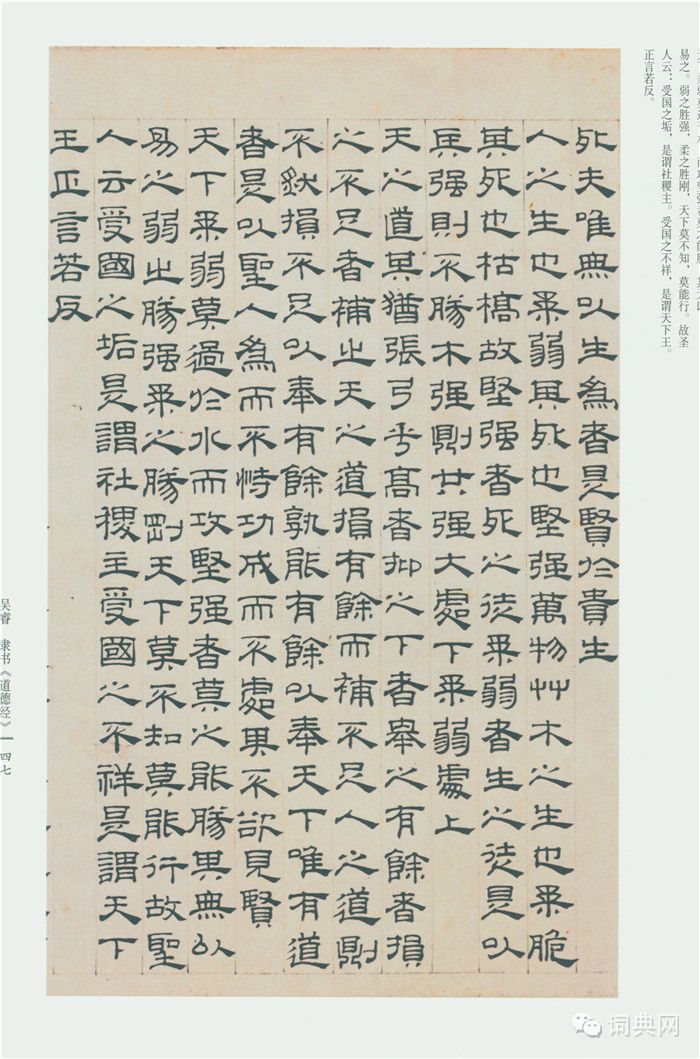 易之。弱之胜强，柔之胜刚，天下莫不知，莫能行。故圣
人云：受国之垢，是谓社稷主。受国之不祥，是谓天下王。
正言若反。
死夫唯無以生為者是賢於貴生
人之生也柔弱其死也堅强萬物艸木之生也柔脆
其死也枯槁故堅强者死之徒柔弱者生之徒是以
兵强則不勝木强則共强大處下柔弱處上
天之道其猶張弓乎高者抑之下者舉之有餘者損
之不足者補之天之道損有餘而補不足人之道則
不然損不足以奉有餘孰能有餘以奉天下唯有道
者是以聖人為而不恃功成而不處其不欲見賢
天下柔弱莫過於水而攻堅强者莫之能勝其無以
易之弱之勝强柔之勝剛天下莫不知莫能行故聖
人云受國之垢是謂社稷主受國之不祥是謂天下
王正言若反
吴睿 隶书《道德经》 四七
词典网